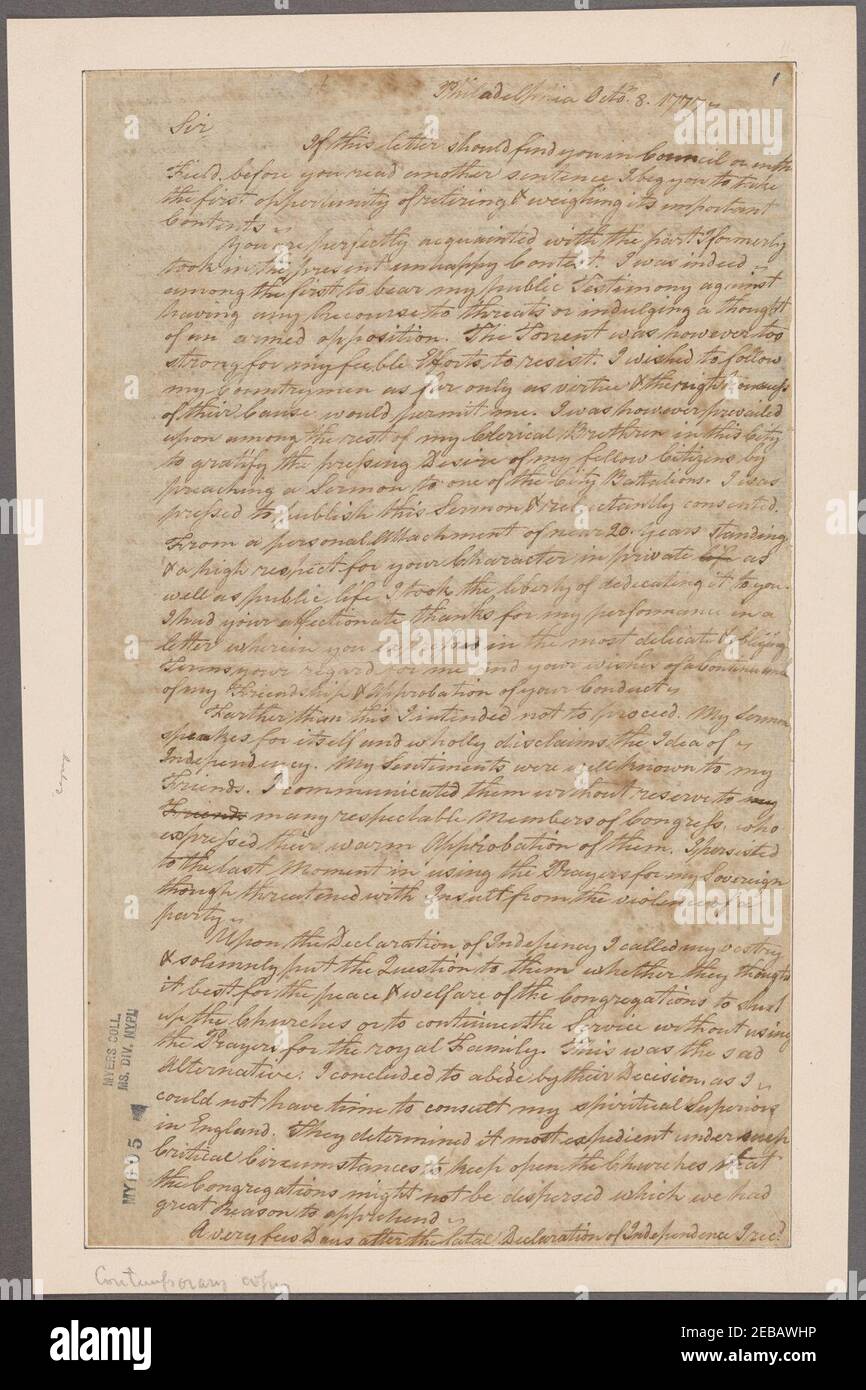 1
Philadelphia Octo.r 8. 1777
Sir
If this letter should find you in Council or in the
Field, before you read another sentence I beg you to take
the first opportunity of retiring & weighing its important
Contents
You are perfectly acquainted with the part I formerly
took in the present unhappy Contest. I was indeed
among the first to bear my public Testimony against
having any Recourse to threats or indulging a thought
of an armed opposition. The Torrent was however too
strong for my feeble Efforts to resist. I wished to follow
my Countrymen as far only as virtue & the righteousness
of their Cause would permit me. I was however prevailed
upon among the rest of my Clerical Brethren in this City
to gratify the pressing Desire of my fellow Citizens by
preaching a Sermon to one of the City Battalions. I was
pressed to publish this Sermon & reluctantly consented.
From a personal Attachment of near 20. Years standing
& a high respect for your Character in private life as
well as public life I took the liberty of dedicating it to you.
I had your affectionate thanks for my performance in a
letter wherein you in the most delicate & obliging
Terms your regard for me and your wishes of a Continuance
of my Friendship & Approbation of your Conduct
Farther than this I intended not to proceed. My Sermon
speakes for itself and wholly disclaims the Idea of
Independency. My Sentiments were well known to my
Friends. I communicated them without reserve to my
Friends many respectable Members of Congress, who
expressed their warm Approbation of them. I persisted
to the last Moment in using the Prayers for my Sovereign
though threatened with Insult from the violence of a
party
Upon the Declaration of Indepency I called my vestry
& solemnly put the Question to them whether they thought
it best for the peace & welfare of the Congregations to shut
up the Churches or to continue the Service without using
the Prayers for the royal Family. This was the sad
Alternative. I concluded to abide by their Decision, as I
could not have time to consult my spiritual Superiors
in England. They determined it most expedient under such
Critical Circumstances to keep open the Churches that
the Congregations might not be dispersed which we had
great Reason to apprehend
A very few Days after the fatal Declaration of Independence I rec.d
MYERS COLL.
MS. DIV. NYPL
Contemporary copy
alamy
2EBAWHP
www.alamy.com